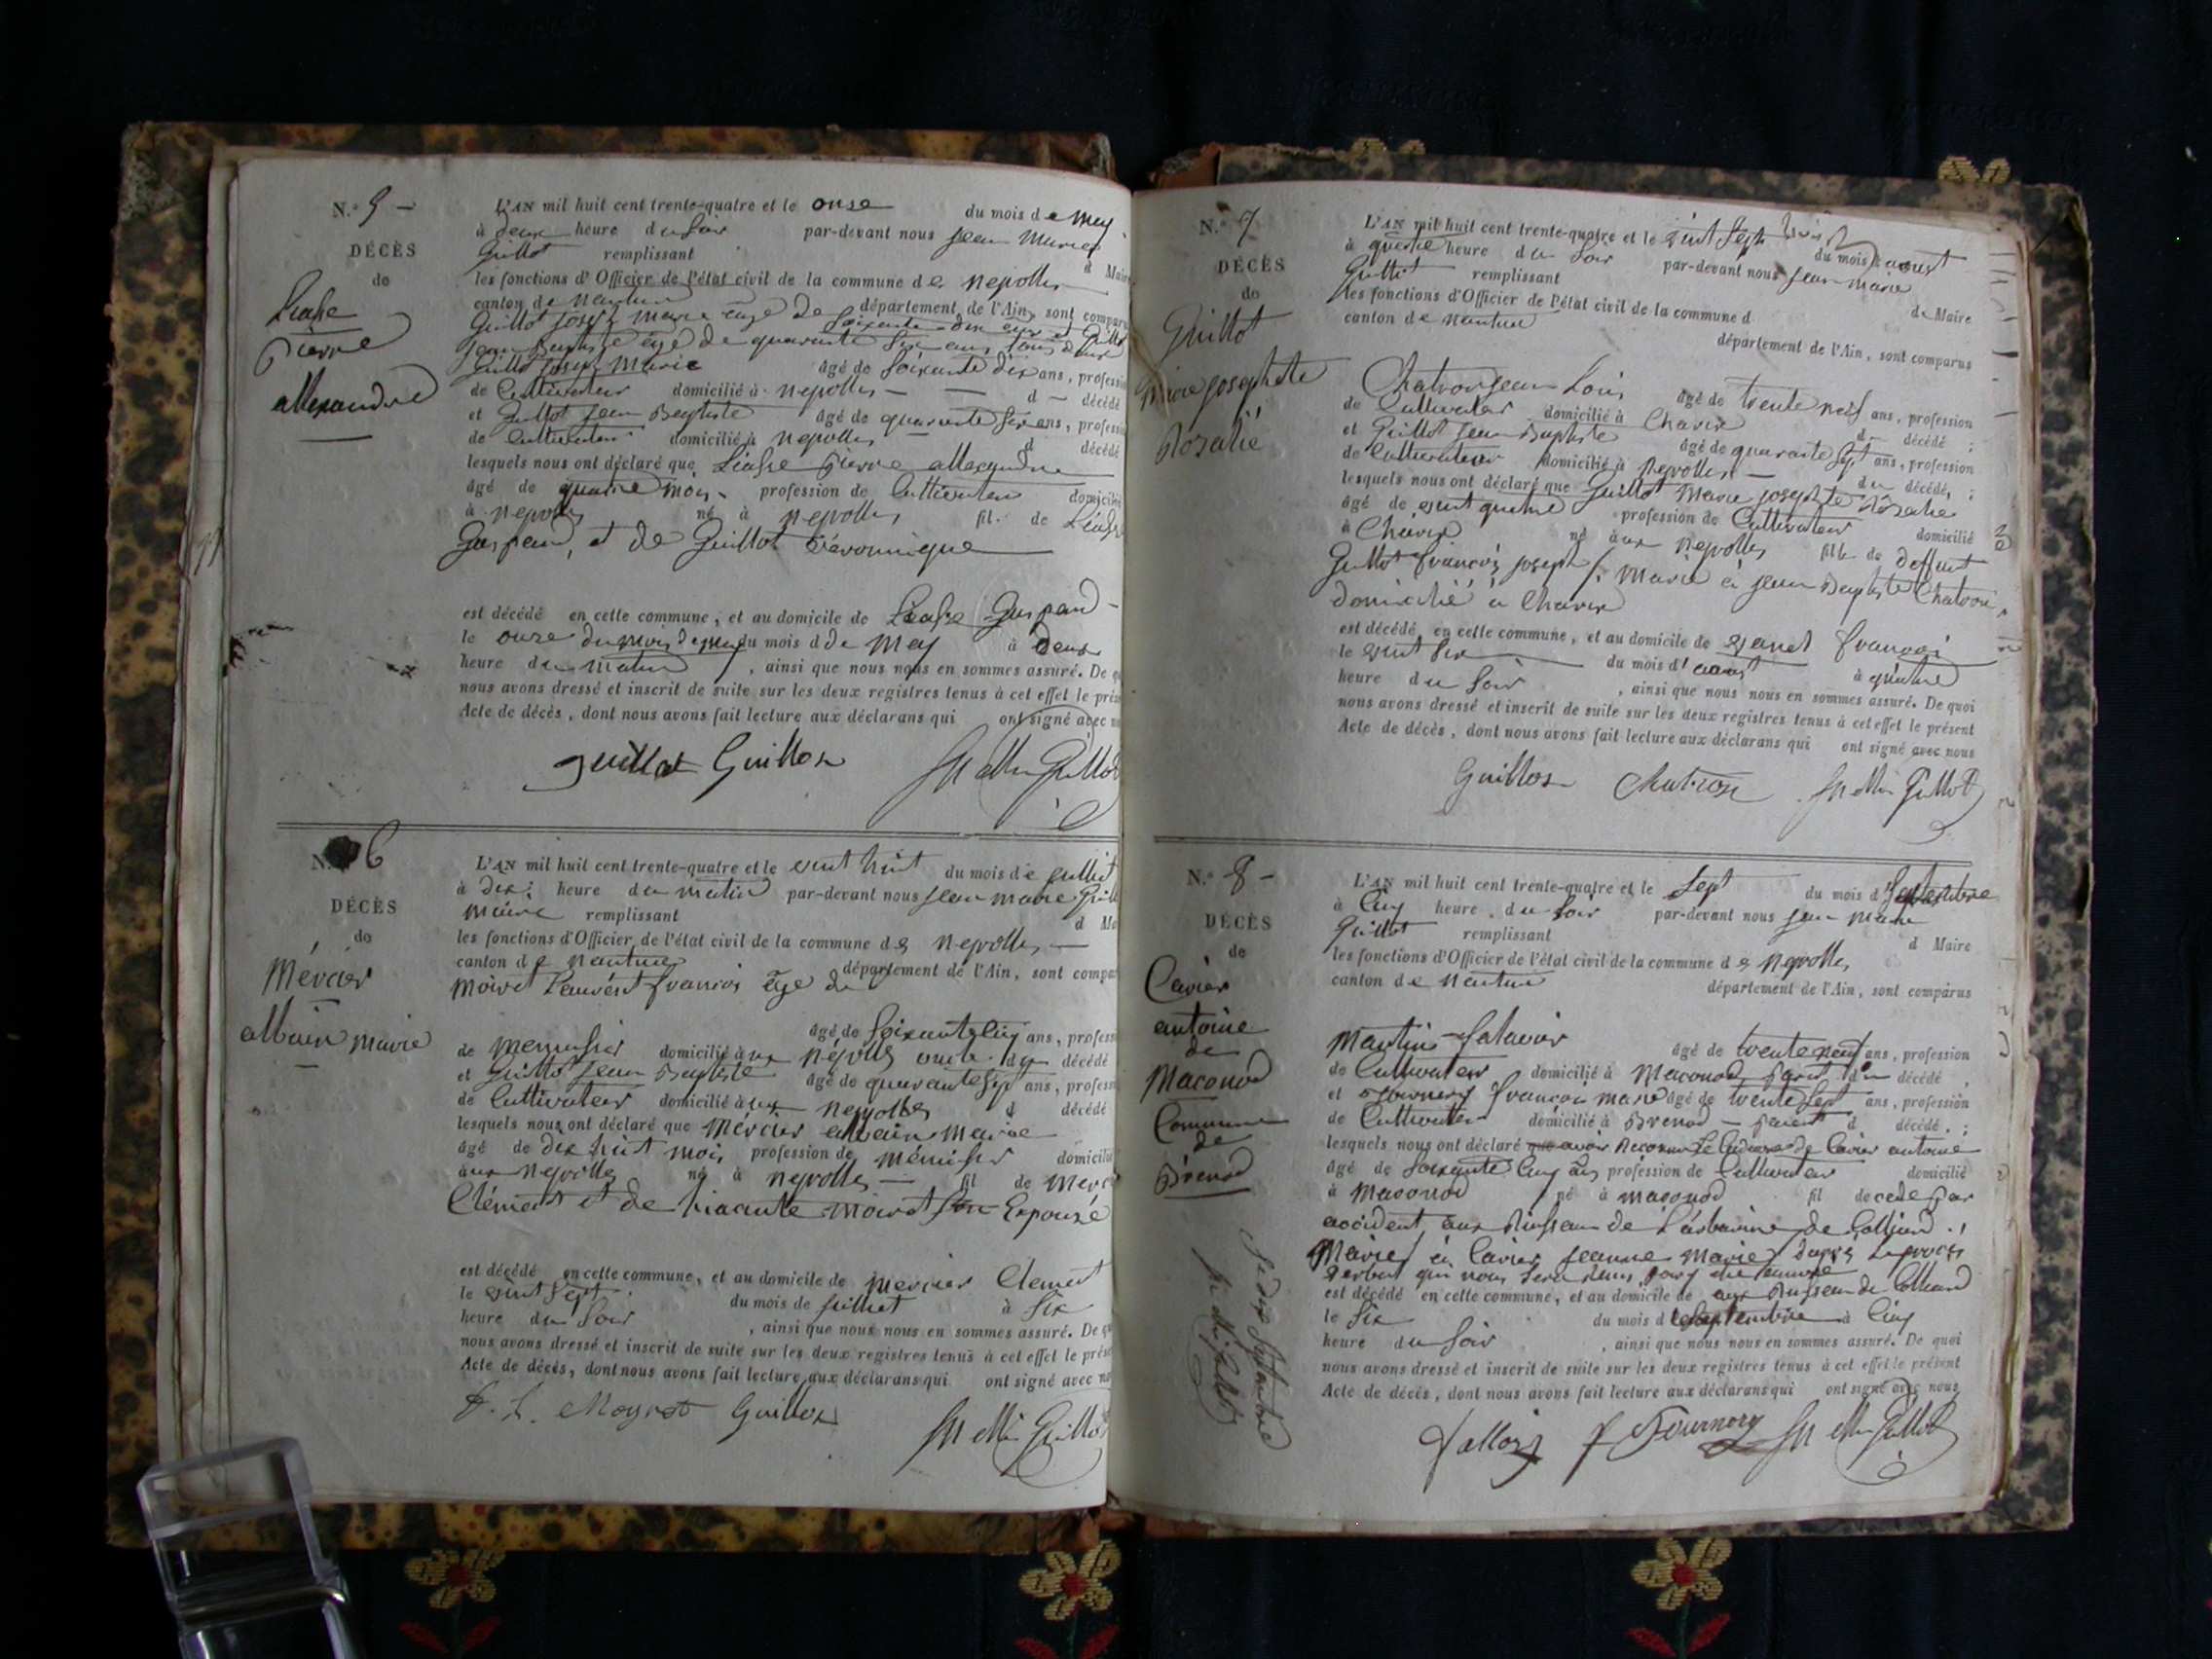 N.° 5 -
DÉCÈS
de
Pierre
allexandre
L'AN mil huit cent trente-quatre et le onse du mois de mey
à deux heure du soir par-devant nous jean marie
Guillot remplissant d Maire
les fonctions d'Officier de l'état civil de la commune des neyrolles
canton de nantua département de l'Ain, sont comparu
Guillot joseph marie âgé de soixante dix ans et Guillot
jean Baptiste âgé de quarante six ans tous deux
Guillot joseph marie âgé de soixante dix ans, profession
de Cultivateur domicilié à neyrolles - d - décédé
et Guillot jean Baptiste âgé de quarante six ans, profession
de Cultivateur domicilié à neyrolles d décédé
lesquels nous ont déclaré que pierre allexandre
âgé de quatre mois - profession de Cultivateur domicilié
à neyrolles né à neyrolles fil. de
Gaspard, et de Guillot véronnique
est décédé en cette commune, et au domicile de Gaspard -
le onze du mois de mey du mois d de mey à deux
heure du matin, ainsi que nous nous en sommes assuré. De
nous avons dressé et inscrit de suite sur les deux registres tenus à cet effet le
Acte de décès, dont nous avons fait lecture aux déclarans qui ont signé avec
guillot Guillot Guillot
N.° 6
DÉCÈS
de
Mércier
albain marie
L'AN mil huit cent trente-quatre et le vint huit du mois de juillet
à dix heure du matin par-devant nous jean marie
maire remplissant d
les fonctions d'Officier de l'état civil de la commune des neyrolles -
canton de nantua département de l'Ain, sont
moiret Laurént françois âge de
âgé de soixante cinq ans,
de menusier domicilié aux neyrolles oncle du décédé
et Guillot jean Baptiste âgé de quarante sept ans,
de Cultivateur domicilié aux neyrolles d décédé
lesquels nous ont déclaré que mércier albain marie
âgé de dix huit mois profession de ménusier domicilié
aux neyrolles né à neyrolles - fil de
Clément et de hiacinte moiret son Epouse
est décédé en cette commune, et au domicile de mercier Clement
le vint sept du mois de juillet à six
heure du soir, ainsi que nous nous en sommes assuré. De
nous avons dressé et inscrit de suite sur les deux registres tenus à cet effet le
Acte de décès, dont nous avons fait lecture aux déclarans qui ont signé avec
Moyret Guillot Guillot
N.° 7
DÉCÈS
de
Guillot
Marie josephete
Rosalie
L'AN mil huit cent trente-quatre et le vint sept du mois d'aoust
à quatre heure du soir par-devant nous jean marie
Guillot remplissant de Maire
les fonctions d'Officier de l'état civil de la commune d
canton de nantua département de l'Ain, sont comparus
Chatron jean Louis âgé de trente neuf ans, profession
de Cultivateur domicilié à Charix d décédé ;
et Guillot jean Baptiste âgé de quarante sept ans, profession
de Cultivateur domicilié à neyrolles - du décédé, ;
lesquels nous ont déclaré que Guillot Marie josephte Rosalie
âgé de vint quatre profession de Cultivateur domicilié
à Charix né aux neyrolles fille de deffunt
Guillot françois joseph marié à jean Baptiste Chatron
domicilié à Charix
est décédé en cette commune, et au domicile de françois
le vint six du mois d'aoust à quatre
heure du soir, ainsi que nous nous en sommes assuré. De quoi
nous avons dressé et inscrit de suite sur les deux registres tenus à cet effet le présent
Acte de décès, dont nous avons fait lecture aux déclarans qui ont signé avec nous
Guillot Chatron Guillot
N.° 8 -
DÉCÈS
de
Cavier
antoine
de
Maconod
Commune
de
Brénod
L'AN mil huit cent trente-quatre et le sept du mois de septembre
à cinq heure du soir par-devant nous jean marie
Guillot remplissant d Maire
les fonctions d'Officier de l'état civil de la commune des neyrolles
canton de nantua département de l'Ain, sont comparus
Martin âgé de trente neuf ans, profession
de Cultivateur domicilié à Maconod parent du décédé
et Tournery françois marie âgé de trente sept ans, profession
de Cultivateur domicilié à Brenod - parent d décédé. ;
lesquels nous ont déclaré que avoir reconnu Le Cadavre de Cavier antoine
âgé de soixante cinq ans profession de Cultivateur domicilié
à Maconod né à maconod fil décédé par
accident aux Ruisseau de de Colliard
Marié à Cavier jeanne marie d'après Le procès
verbal qui nous sera
est décédé en cette commune, et au domicile de aux Ruisseau de Colliard
le six du mois de septembre à cinq
heure du soir, ainsi que nous nous en sommes assuré. De quoi
nous avons dressé et inscrit de suite sur les deux registres tenus à cet effet le présent
Acte de décès, dont nous avons fait lecture aux déclarans qui ont signé avec nous
f Tournery Guillot